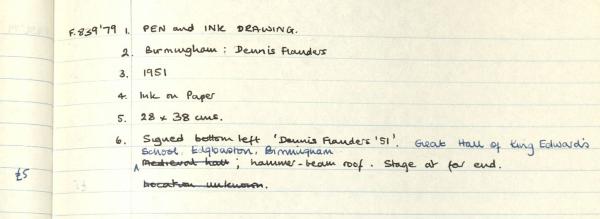 F.839'79 1. PEN and INK DRAWING.
2. Birmingham : Dennis Flanders
3. 1951
4. Ink on Paper
5. 28 x 38 cms.
6. Signed bottom left 'Dennis Flanders '51'. Great Hall of King Edward's
School, Edgbaston, Birmingham
£5 ^ Medieval hall ; hammer-beam roof. Stage at far end.
Location unknown.